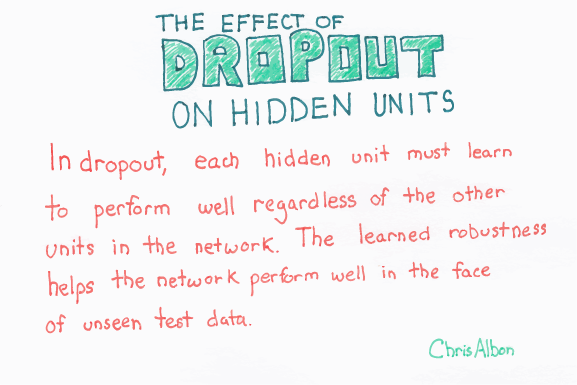 THE EFFECT OF
DROPOUT
ON HIDDEN UNITS
In dropout, each hidden unit must learn
to perform well regardless of the other
units in the network. The learned robustness
helps the network perform well in the face
of unseen test data.
Chris Albon